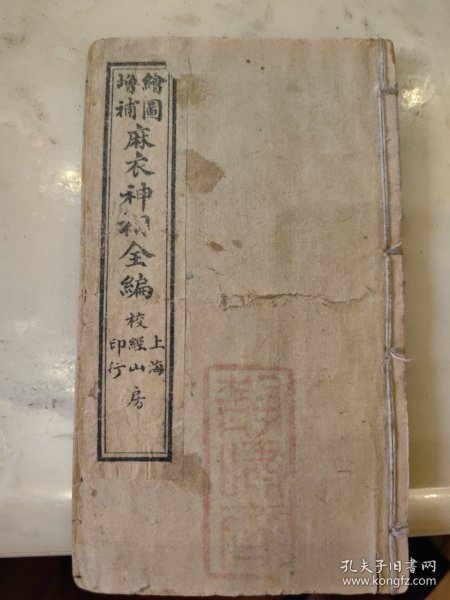 繪圖
增補
麻衣神相全編
上海
校經山房
印行
孔夫子旧书网
www.kongfz.com